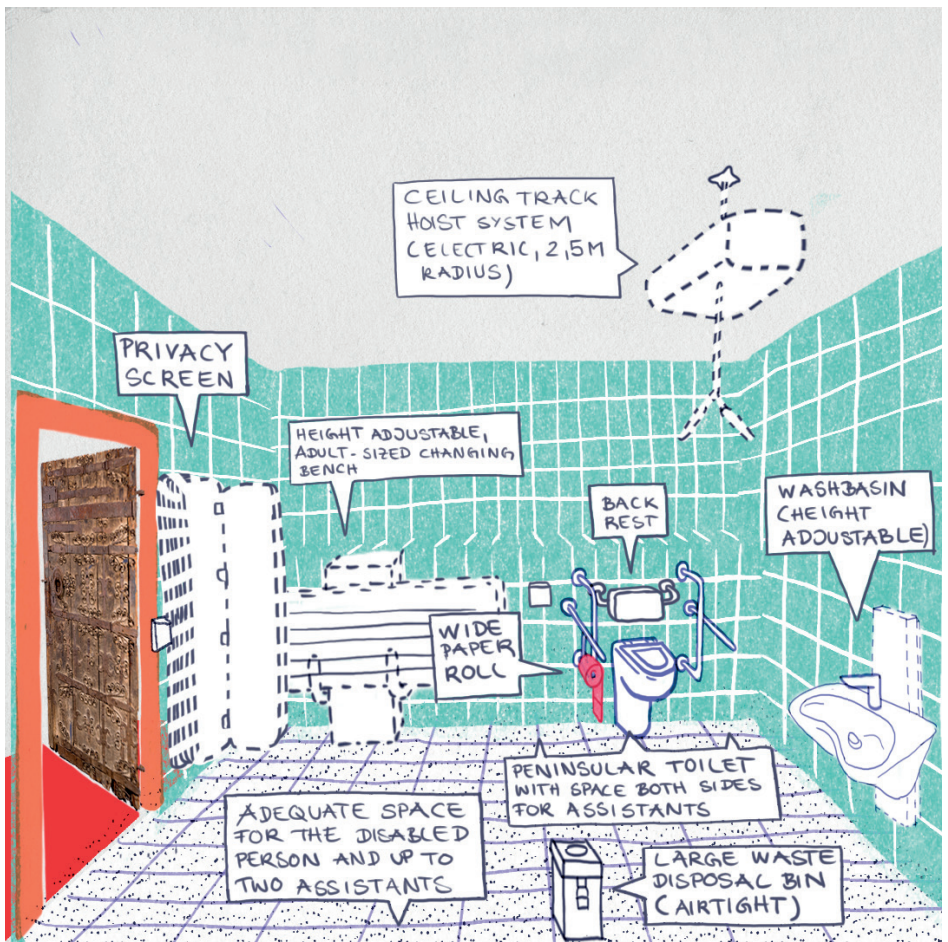 CEILING TRACK
HOIST SYSTEM
(ELECTRIC, 2,5M
RADIUS)
PRIVACY
SCREEN
HEIGHT ADJUSTABLE,
ADULT-SIZED CHANGING
BENCH
BACK
REST
WASHBASIN
(HEIGHT
ADJUSTABLE)
WIDE
PAPER
ROLL
PENINSULAR TOILET
WITH SPACE BOTH SIDES
FOR ASSISTANTS
ADEQUATE SPACE
FOR THE DISABLED
PERSON AND UP TO
TWO ASSISTANTS
LARGE WASTE
DISPOSAL BIN
(AIRTIGHT)